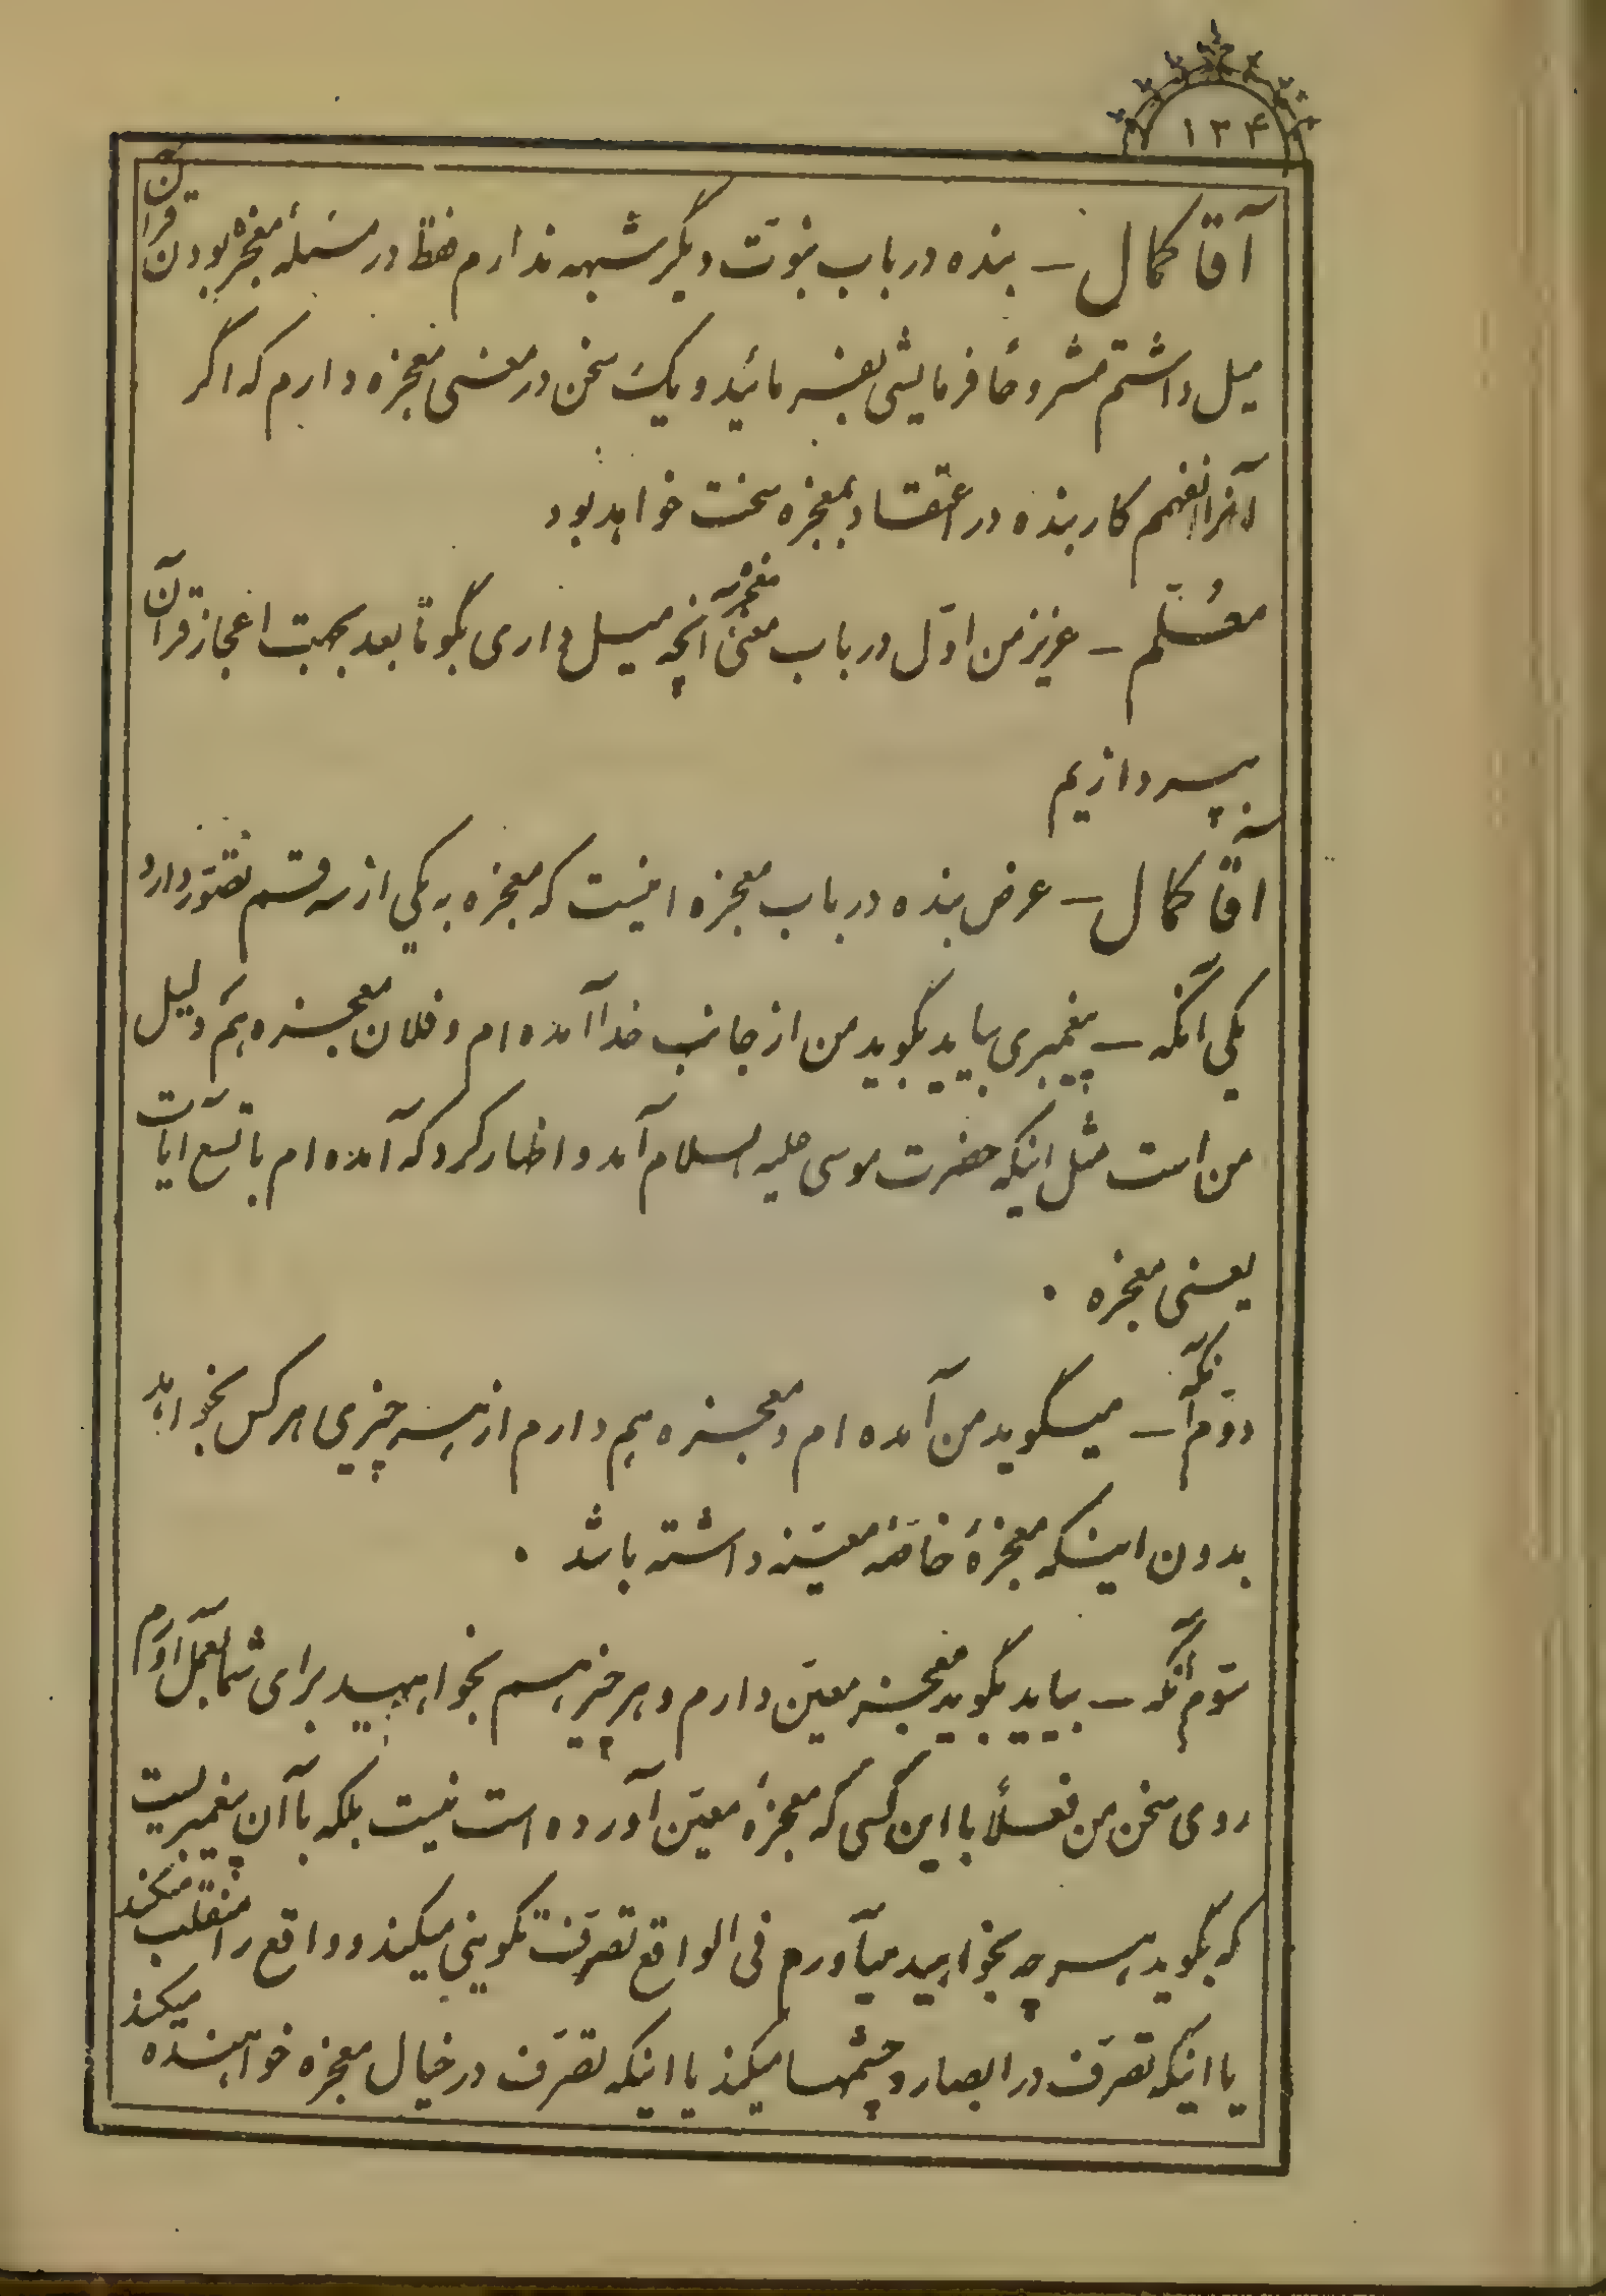 ۱۳۴
آقا کمال – بنده در باب نبوّت دیگر شبهه ندارم فقط در مسئلهٔ معجزه بودن قرآن
میل داشتم مشروحاً فرمایشی بفرمائید و یک سخن در معنی معجزه دارم که اگر
آنرا نفهمم کار بنده در اعتقاد بمعجزه سخت خواهد بود
معلّم – عزیز من اوّل در باب معنی معجزه آنچه میل داری بگو تا بعد بجهت اعجاز قرآن
بپردازیم
آقا کمال – عرض بنده در باب معجزه اینست که معجزه به یکی از سه قسم تصوّر دارد
یکی آنکه – پیغمبری بیاید بگوید من از جانب خدا آمده ام و فلان معجزه هم دلیل
من است مثل اینکه حضرت موسی علیه السلام آمد و اظهار کرد که آمده ام با تسع آیات
یعنی معجزه .
دوّم آنکه – میگوید من آمده ام و معجزه هم دارم از هر چیزی هر کس بخواهد
بدون اینکه معجزهٔ خاصّهٔ معیّنه داشته باشد .
سوّم آنکه – بیاید بگوید معجزه معیّن دارم و هر چیز هم بخواهید برای شما بعمل آورم
روی سخن من فعلاً با این کسی که معجزهٔ معیّن آورده است نیست بلکه با آن پیغمبریست
که بگوید هر چه بخواهید میآورم فی الواقع تصرّفت تکوینی میکند و واقع را منقلب میکند
یا اینکه تصرّف در ابصار و چشمها میکند یا اینکه تصرّف در خیال معجزه خواهنده میکند